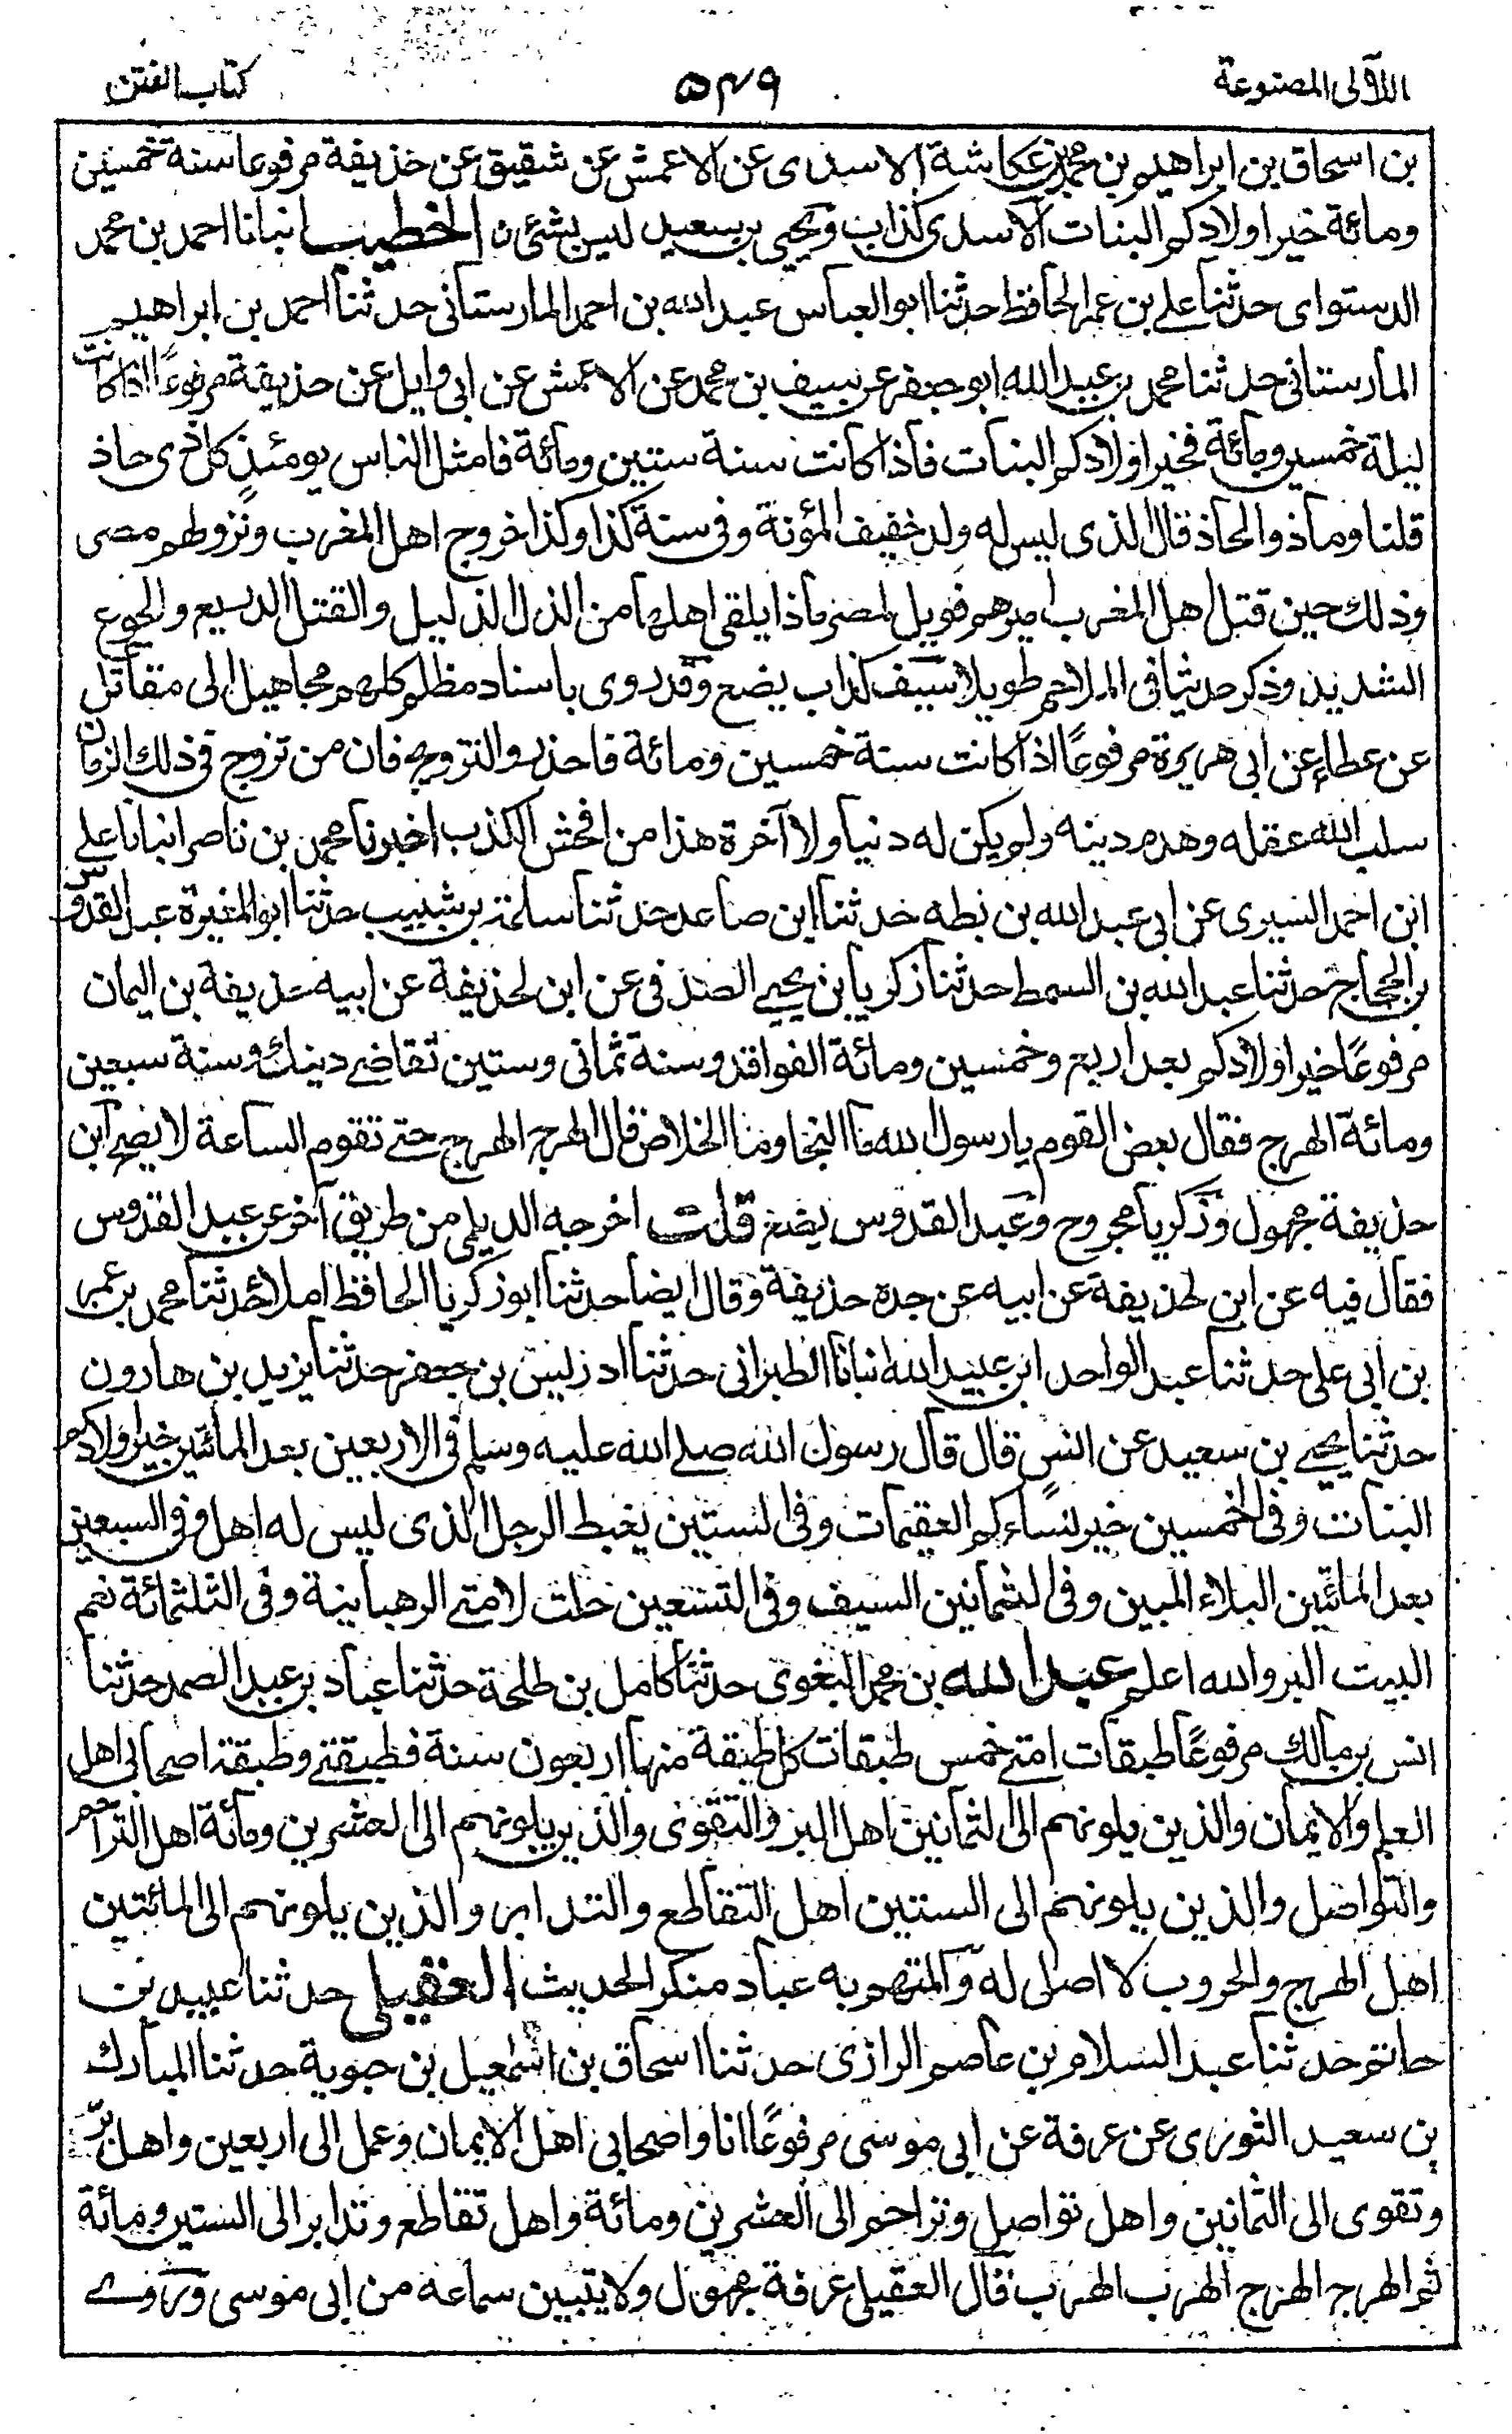 اللآلى المصنوعة
۵۴۹
كتاب الفتن
بن اسحاق بن ابراهيم بن محمد بن عكاشة الاسدى عن الاعمش عن شقيق عن حذيفة مرفوعا سنة خمسين
ومائة خير اولادكم البنات الاسدى كذاب ويحيى بن سعيد ليس بشئ الخطيب انبانا احمد بن محمد
الدستواى حدثنا على بن عمر الحافظ حدثنا ابو العباس عبد الله بن احمد المارستانى حدثنا احمد بن ابراهيم
المارستانى حدثنا محمد بن عبيد الله ابو جعفر عن سيف بن محمد عن الاعمش عن ابى وايل عن حذيفة مرفوعًا اذا كانت
ليلة خمسين ومائة فخير اولادكم البنات فاذا كانت سنة ستين ومائة فامثل الناس يومئذ كل ذى حاذ
قلنا وما ذو الحاذ قال الذى ليس له ولد خفيف المؤنة وفى سنة كذا وكذا خروج اهل المغرب ونزولهم مصر
وذلك حين قتل اهل المغرب اميرهم فويل لمصر ماذا يلقى اهلها من الذل الذليل والقتل الذريع والجوع
الشديد وذكر حديثا فى الملاحم طويلا سيف كذاب يضع وقد روى باسناد مظلم كلهم مجاهيل الى مقاتل
عن عطاء عن ابى هريرة مرفوعًا اذا كانت سنة خمسين ومائة فاحذروا التزويج فان من تزوج فى ذلك الزمان
سلب الله عقله وهدم دينه ولم يكن له دنيا ولا آخرة هذا من افحش الكذب اخبرنا محمد بن ناصر انبانا على
ابن احمد البسرى عن ابى عبد الله بن بطه حدثنا ابن صاعد حدثنا سلمة بن شبيب حدثنا ابو المغيرة عبد القدوس
بن الحجاج حدثنا عبد الله بن السمط حدثنا زكريا بن يحيى الصدفى عن ابن لحذيفة عن ابيه حذيفة بن اليمان
مرفوعًا خير اولادكم بعد اربع وخمسين ومائة الفواقد وسنة ثمانى وستين تقاضى دينك وسنة سبعين
ومائة الهرج فقال بعض القوم يا رسول الله ما النجا وما الخلاص قال الهرج الهرج حتى تقوم الساعة لا يصح ابن
حذيفة مجهول وزكريا مجروح وعبد القدوس يضع قلت اخرجه الديلمى من طريق آخر عن عبد القدوس
فقال فيه عن ابن لحذيفة عن ابيه عن جده حذيفة وقال ايضا حدثنا ابو زكريا الحافظ املاءً حدثنا محمد بن عمر
بن ابى على حدثنا عبد الواحد ابن عبيد الله انبانا الطبرانى حدثنا ادريس بن جعفر حدثنا يزيد بن هارون
حدثنا يحيى بن سعيد عن انس قال قال رسول الله صلى الله عليه وسلم فى الاربعين بعد المائتين خير اولادكم
البنات وفى الخمسين خير نساءكم العقيمات وفى الستين يغبط الرجل الذى ليس له اهل وفى السبعين
بعد المائتين البلاء المبين وفى الثمانين السيف وفى التسعين حلت لامتى الرهبانية وفى الثلثمائة نعم
البيت البر والله اعلم عبد الله بن محمد البغوى حدثنا كامل بن طلحة حدثنا عباد بن عبد الصمد حدثنا
انس بن مالك مرفوعًا طبقات امتى خمس طبقات كل طبقة منها اربعون سنة فطبقتى وطبقة اصحابى اهل
العلم والايمان والذين يلونهم الى الثمانين اهل البر والتقوى والذين يلونهم الى العشرين ومائة اهل التراحم
والتواصل والذين يلونهم الى الستين اهل التقاطع والتدابر والذين يلونهم الى المائتين
اهل الهرج والحروب لا اصل له والمتهم به عباد منكر الحديث العقيلى حدثنا عبيد بن
حاتم حدثنا عبد السلام بن عاصم الرازى حدثنا اسحاق بن اسمعيل بن حبوية حدثنا المبارك
بن سعيد الثورى عن عرفة عن ابى موسى مرفوعًا انا واصحابى اهل الايمان وعمل الى اربعين واهل برّ
وتقوى الى الثمانين واهل تواصل وتراحم الى العشرين ومائة واهل تقاطع وتدابر الى الستين ومائة
ثم الهرج الهرج الهرب الهرب قال العقيلى عرفة مجهول ولا يتبين سماعه من ابى موسى وروى